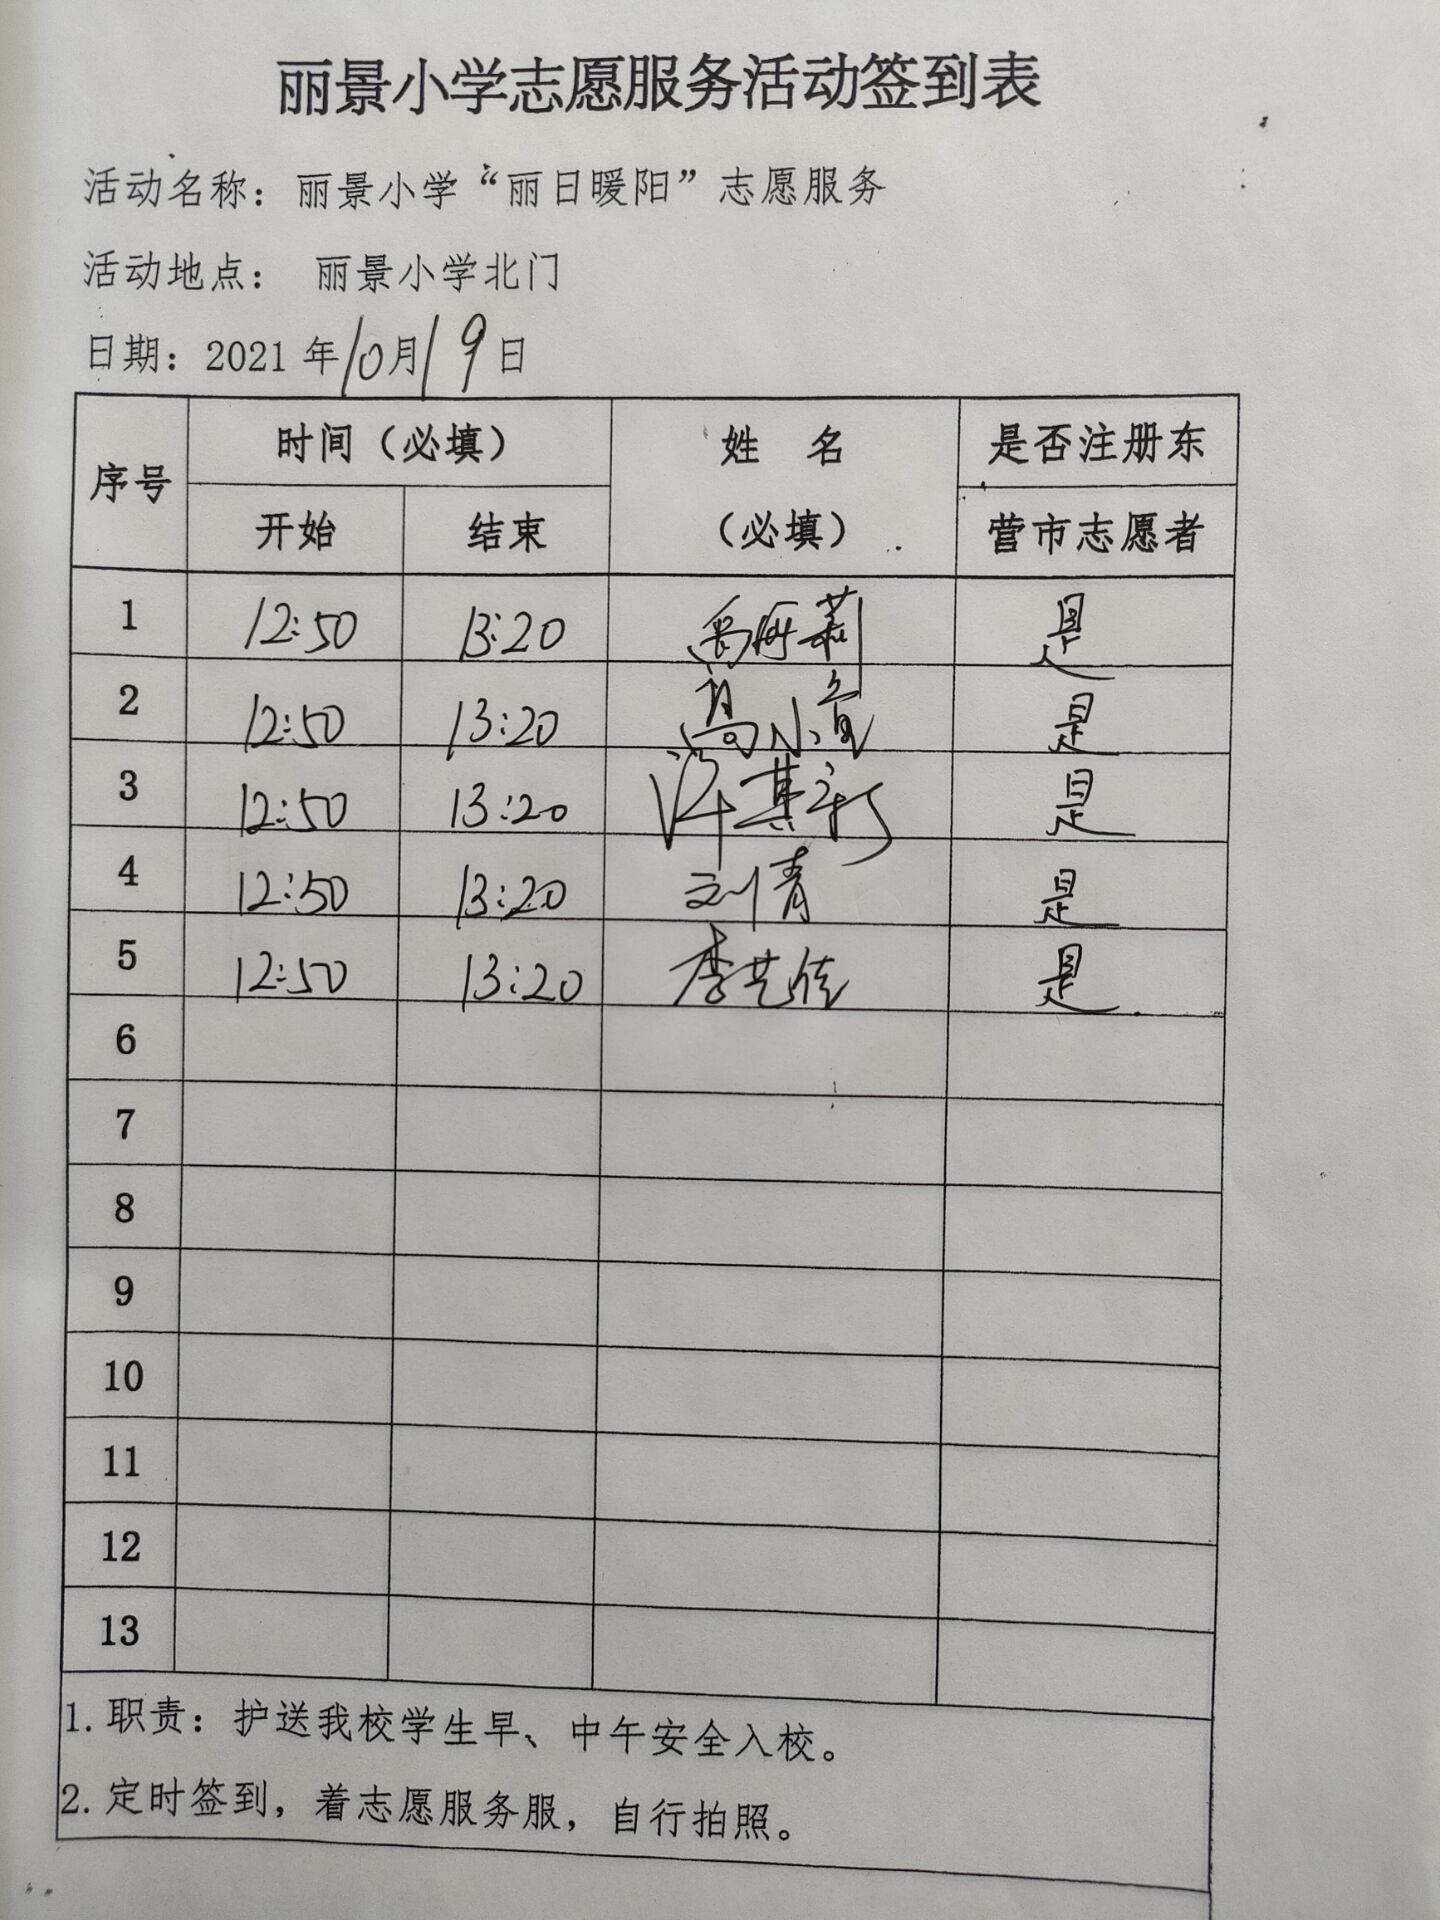 丽景小学志愿服务活动签到表
活动名称：丽景小学“丽日暖阳”志愿服务
活动地点： 丽景小学北门
日期：2021年10月19日
序号 时间（必填） 姓 名 是否注册东
开始 结束 （必填） 营市志愿者
1 12:50 13:20 是
2 12:50 13:20 是
3 12:50 13:20 许其新 是
4 12:50 13:20 刘青 是
5 12:50 13:20 李艺佳 是
6
7
8
9
10
11
12
13
1. 职责：护送我校学生早、中午安全入校。
2. 定时签到，着志愿服务服，自行拍照。